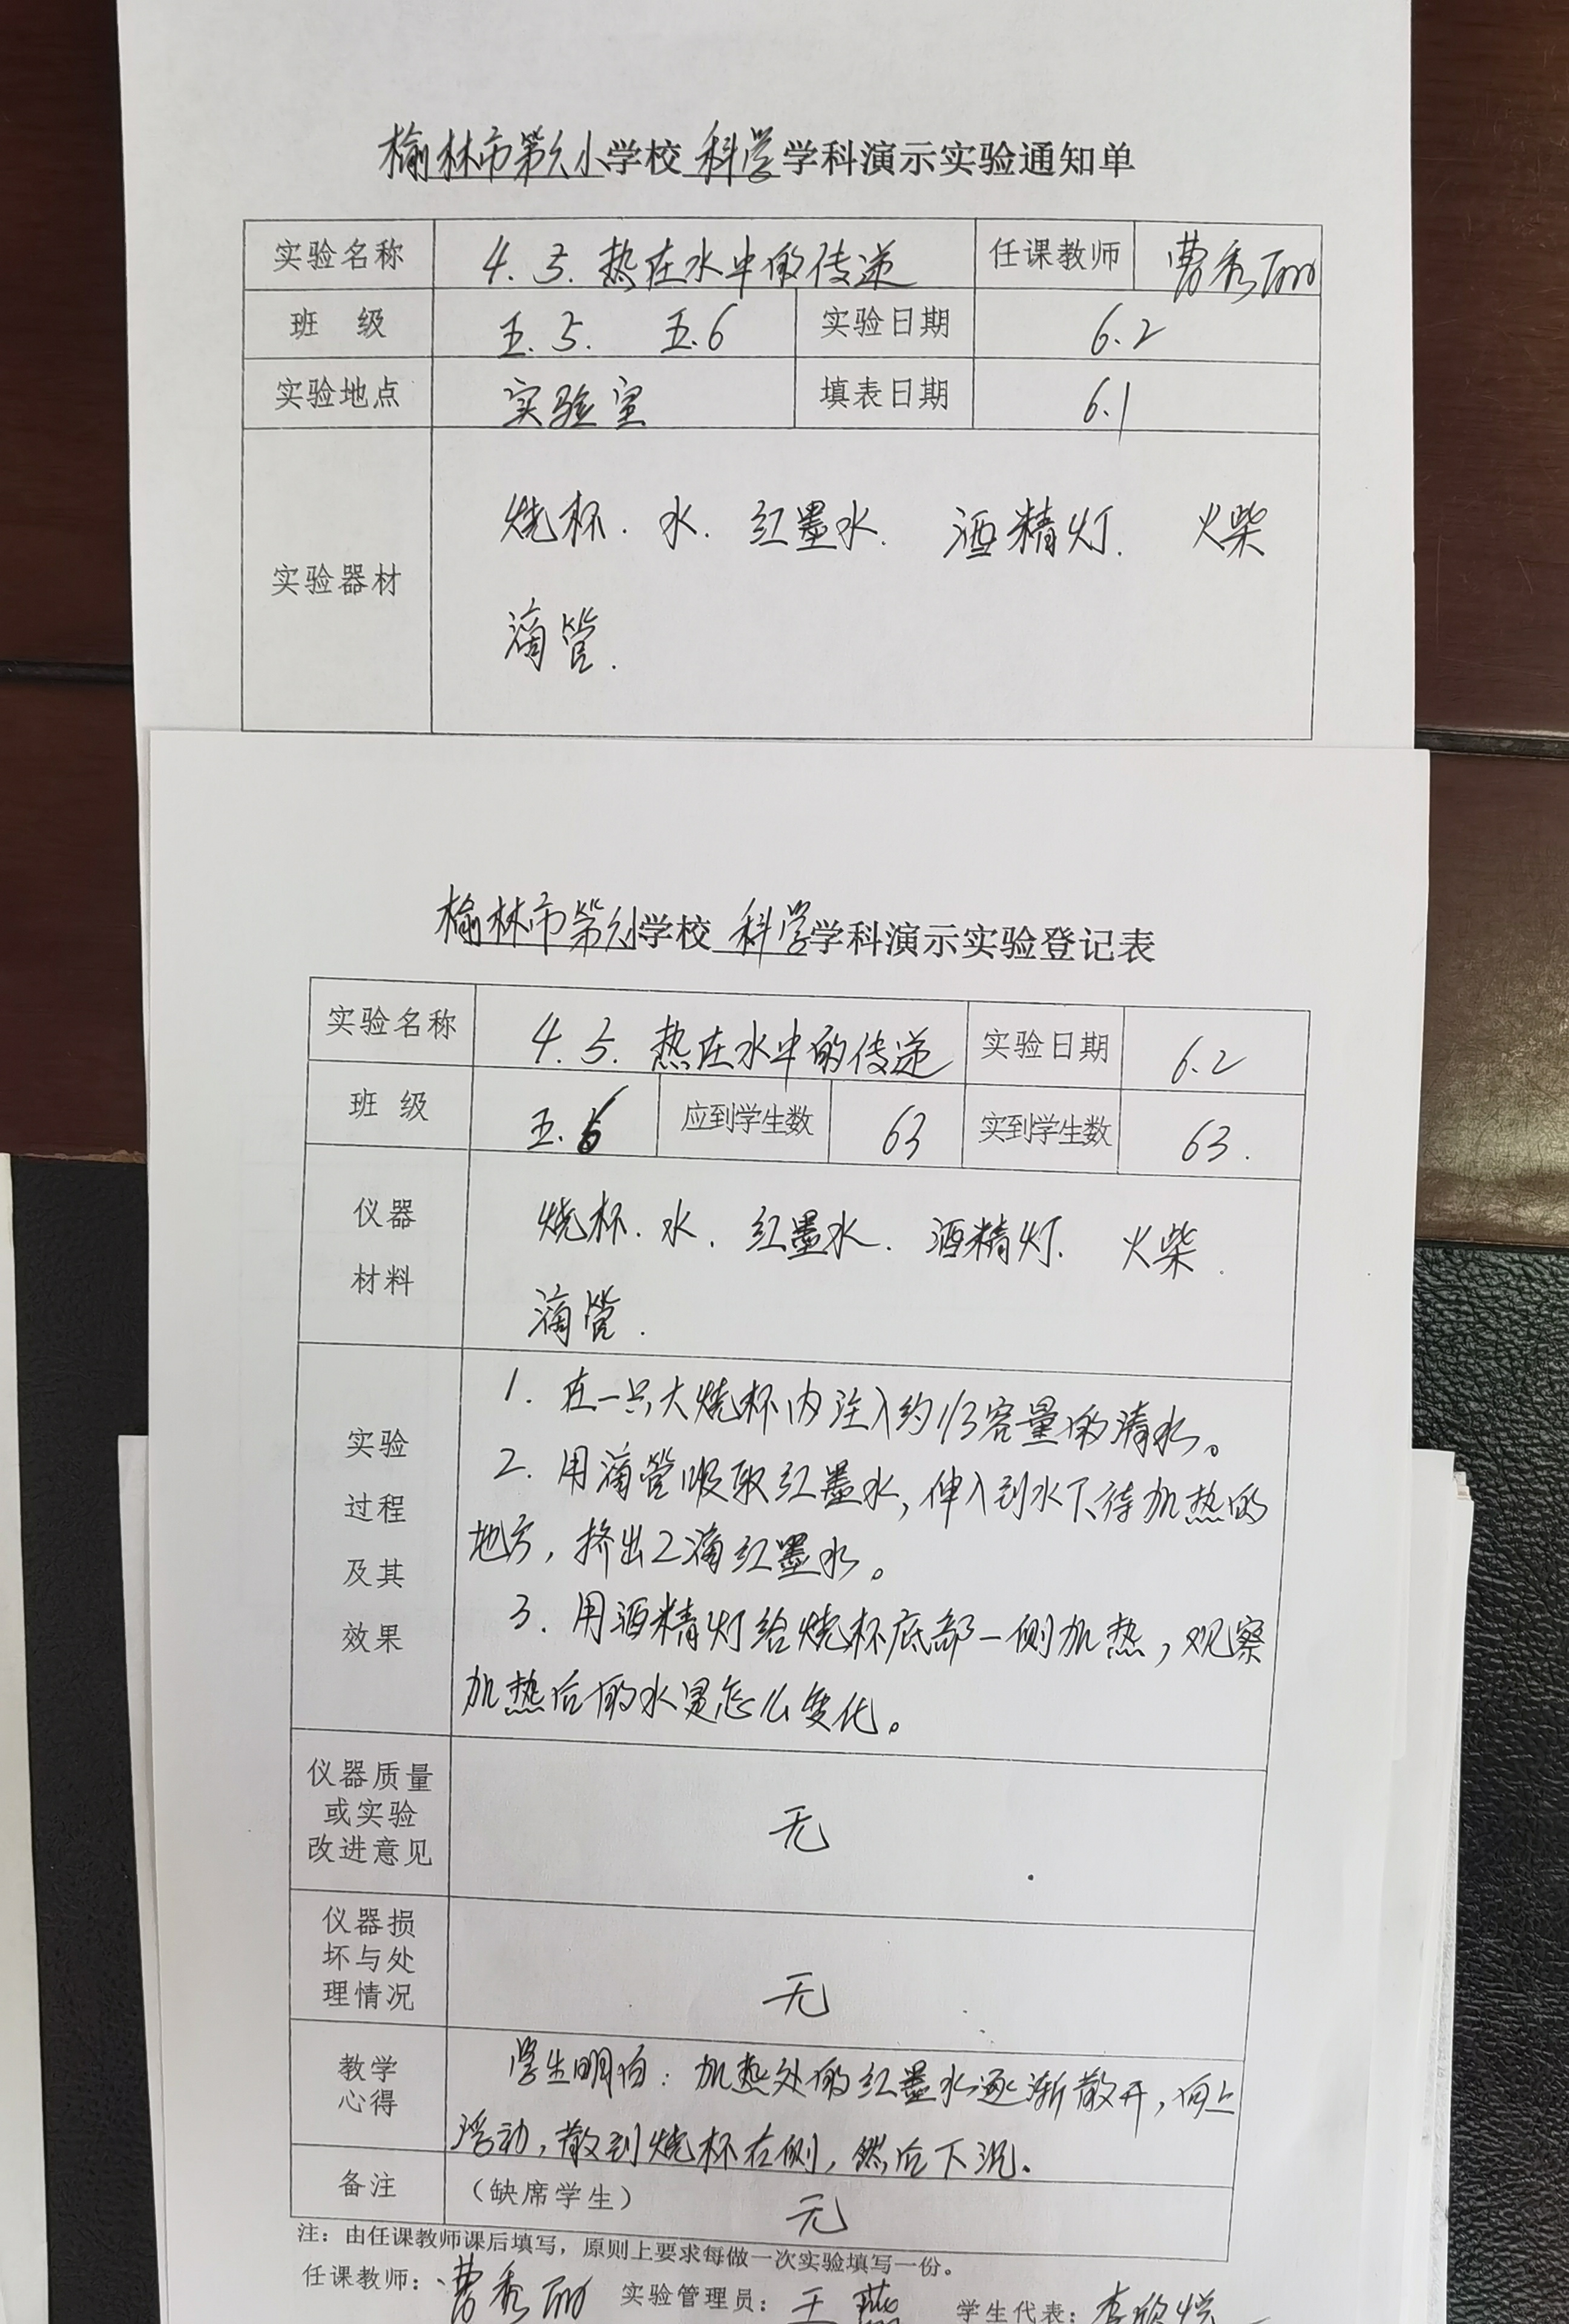 榆林市第六小学校 科学学科演示实验通知单
实验名称 4.5.热在水中的传递 任课教师 曹秀丽
班 级 五.5. 五.6 实验日期 6.2
实验地点 实验室 填表日期 6.1
实验器材 烧杯.水.红墨水.酒精灯.火柴
滴管.
榆林市第六小学校 科学学科演示实验登记表
实验名称 4.5.热在水中的传递 实验日期 6.2
班 级 五.6 应到学生数 63 实到学生数 63.
仪器 烧杯.水.红墨水.酒精灯.火柴.
材料 滴管.
实验 1.在一只大烧杯内注入约1/3容量的清水。
过程 2.用滴管吸取红墨水,伸入到水下待加热的
及其 地方,挤出2滴红墨水。
效果 3.用酒精灯给烧杯底部一侧加热,观察
加热后的水是怎么变化。
仪器质量
或实验 无
改进意见
仪器损
坏与处
理情况 无
教学 学生明白:加热处的红墨水逐渐散开,向上
心得 浮动,散到烧杯右侧,然后下沉.
备注 (缺席学生) 无
注:由任课教师课后填写,原则上要求每做一次实验填写一份。
任课教师:曹秀丽 实验管理员:王燕 学生代表:李欣悦